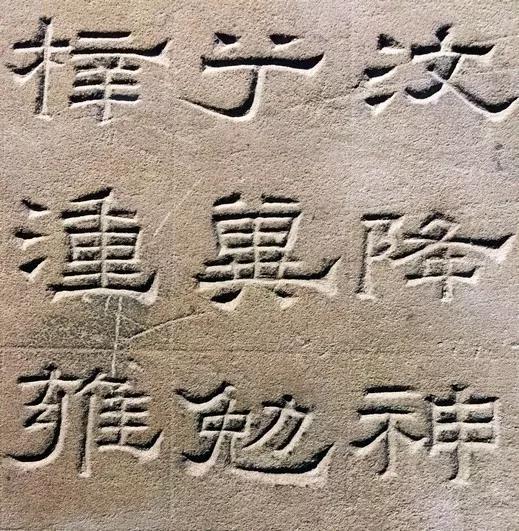 汶降神
于冀勉
梓潼雍